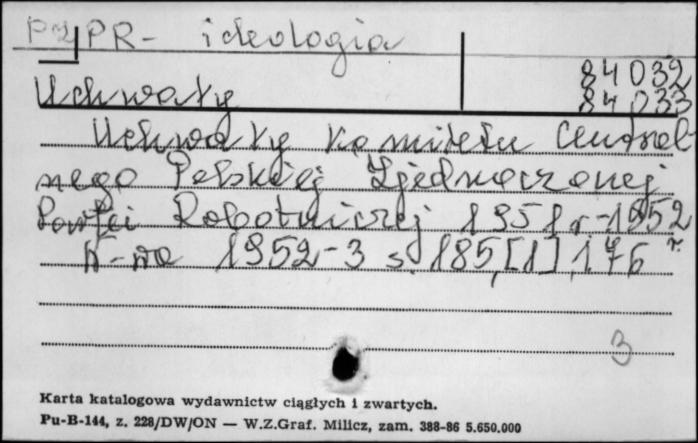 PZPR - ideologia
84032
Uchwały 84033
Uchwały Komitetu Central
nego Polskiej Zjednoczonej
Partii Robotniczej 1951 r - 1952 r.
W-wa 1952-3 s. 185, [1], 176
3
Karta katalogowa wydawnictw ciągłych i zwartych.
Pu-B-144, z. 228/DW/ON — W.Z.Graf. Milicz, zam. 388-86 5.650.000